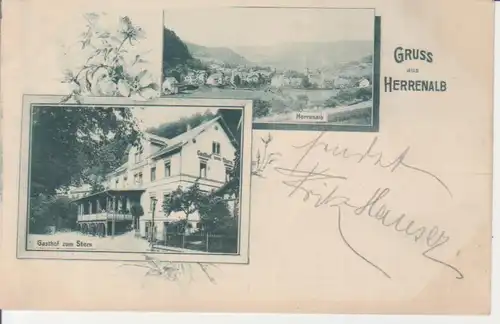 GRUSS
aus
HERRENALB
Herrenalb
Gasthof zum Stern
sendet
Fritz Hauser